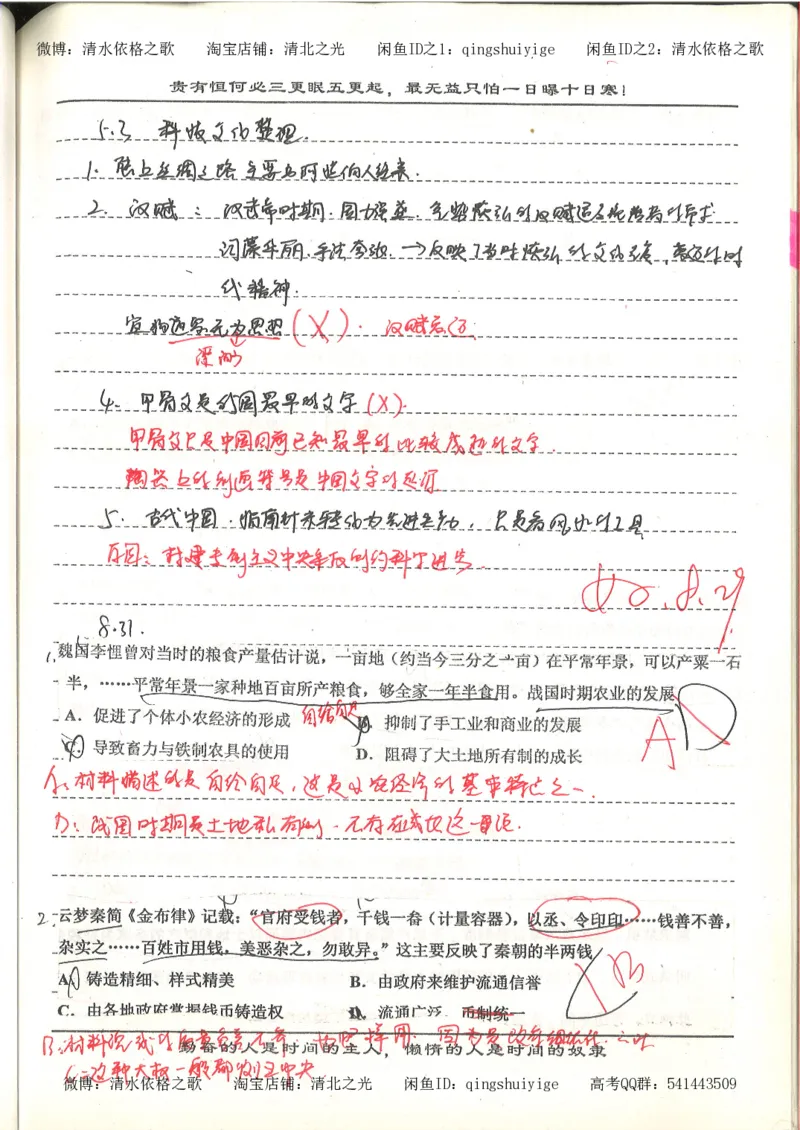 微博：清水依格之歌 淘宝店铺：清北之光 闲鱼ID之1：qingshuiyige 闲鱼ID之2：清水依格之歌
贵有恒何必三更眠五更起，最无益只怕一日曝十日寒！
5.3 科技文化整理.
1. 陆上丝绸之路主要与阿拉伯人往来.
2. 汉赋：汉武帝时期.国力强盛.气势恢弘的汉赋适
词藻华丽.手法夸张.→反映了当时恢弘的文化
代精神.
宣扬 无为思想(X).汉赋
4. 甲骨文是我国最早的文字(X).
甲骨文只是中国目前已知最早的比较成熟的文字.
陶器上的刻画符号是中国文字的
5. 古代中国.指南针未转化为先进生产力，只是看风水的工具
原因：封建专制主义中央集权制约科学进步.
8.29
8.31.
1.魏国李悝曾对当时的粮食产量估计说，一亩地（约当今三分之一亩）在平常年景，可以产粟一石
半，……平常年景一家种地百亩所产粮食，够全家一年半食用。战国时期农业的发展
A．促进了个体小农经济的形成 自给自足 B．抑制了手工业和商业的发展
C．导致畜力与铁制农具的使用 D．阻碍了大土地所有制的成长
A D
A：材料描述的是自给自足，这是小农经济的基本特点之一.
D：战国时期是土地私有制.不存在 这一 .
2.云梦秦简《金布律》记载：“官府受钱者，千钱一畚（计量容器），以丞、令印印……钱善不善，
杂实之……百姓市用钱，美恶杂之，勿敢异。”这主要反映了秦朝的半两钱
A．铸造精细、样式精美 B．由政府来维护流通信誉
C．由各地政府掌握铸币铸造权 D．流通广泛、币制统一
B
B：材料说
勤奋的人是时间的主人，懒惰的人是时间的奴隶
C：这种大权一般都 中央
微博：清水依格之歌 淘宝店铺：清北之光 闲鱼ID：qingshuiyige 高考QQ群：541443509